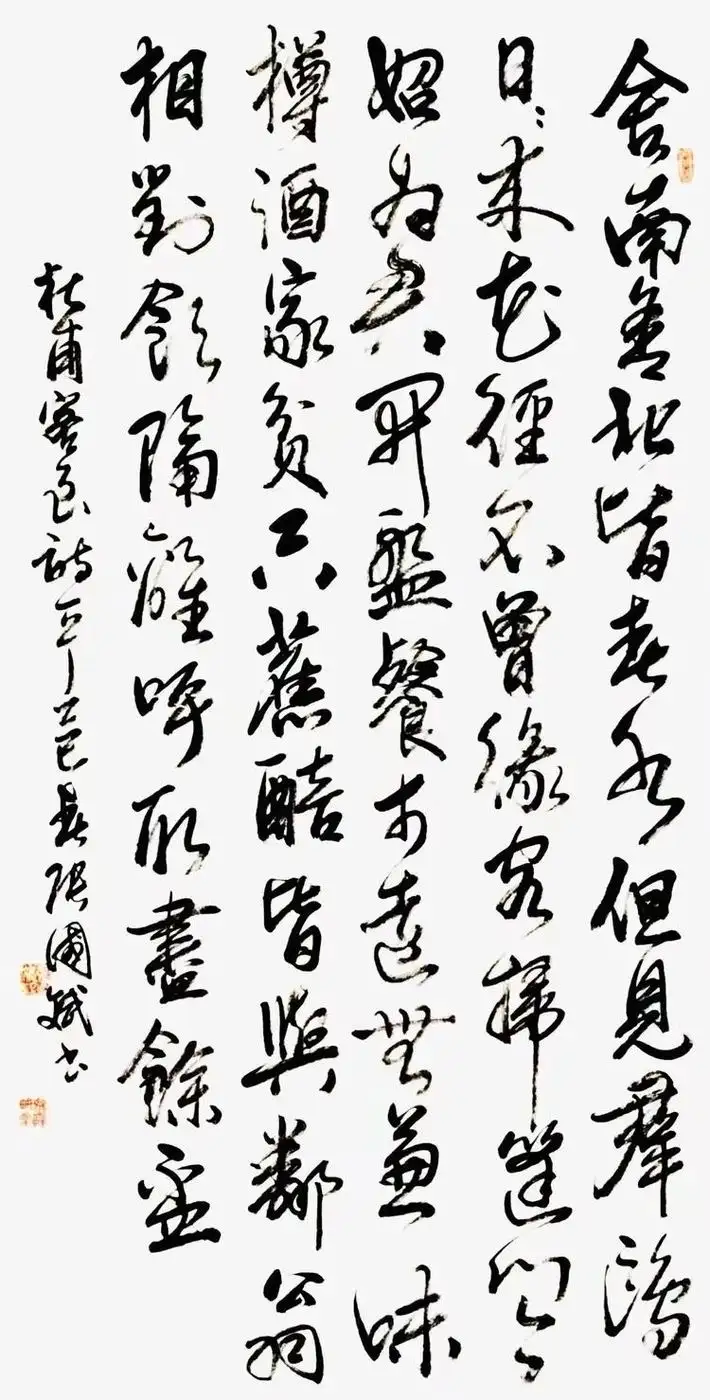 舍南舍北皆春水但見羣鷗
日日來花徑不曾緣客掃蓬門今
始為君開盤餐市遠無兼味
樽酒家貧只舊醅皆與鄰翁
相對飲隔籬呼取盡餘盃
杜甫客至詩乙巳春張國斌書